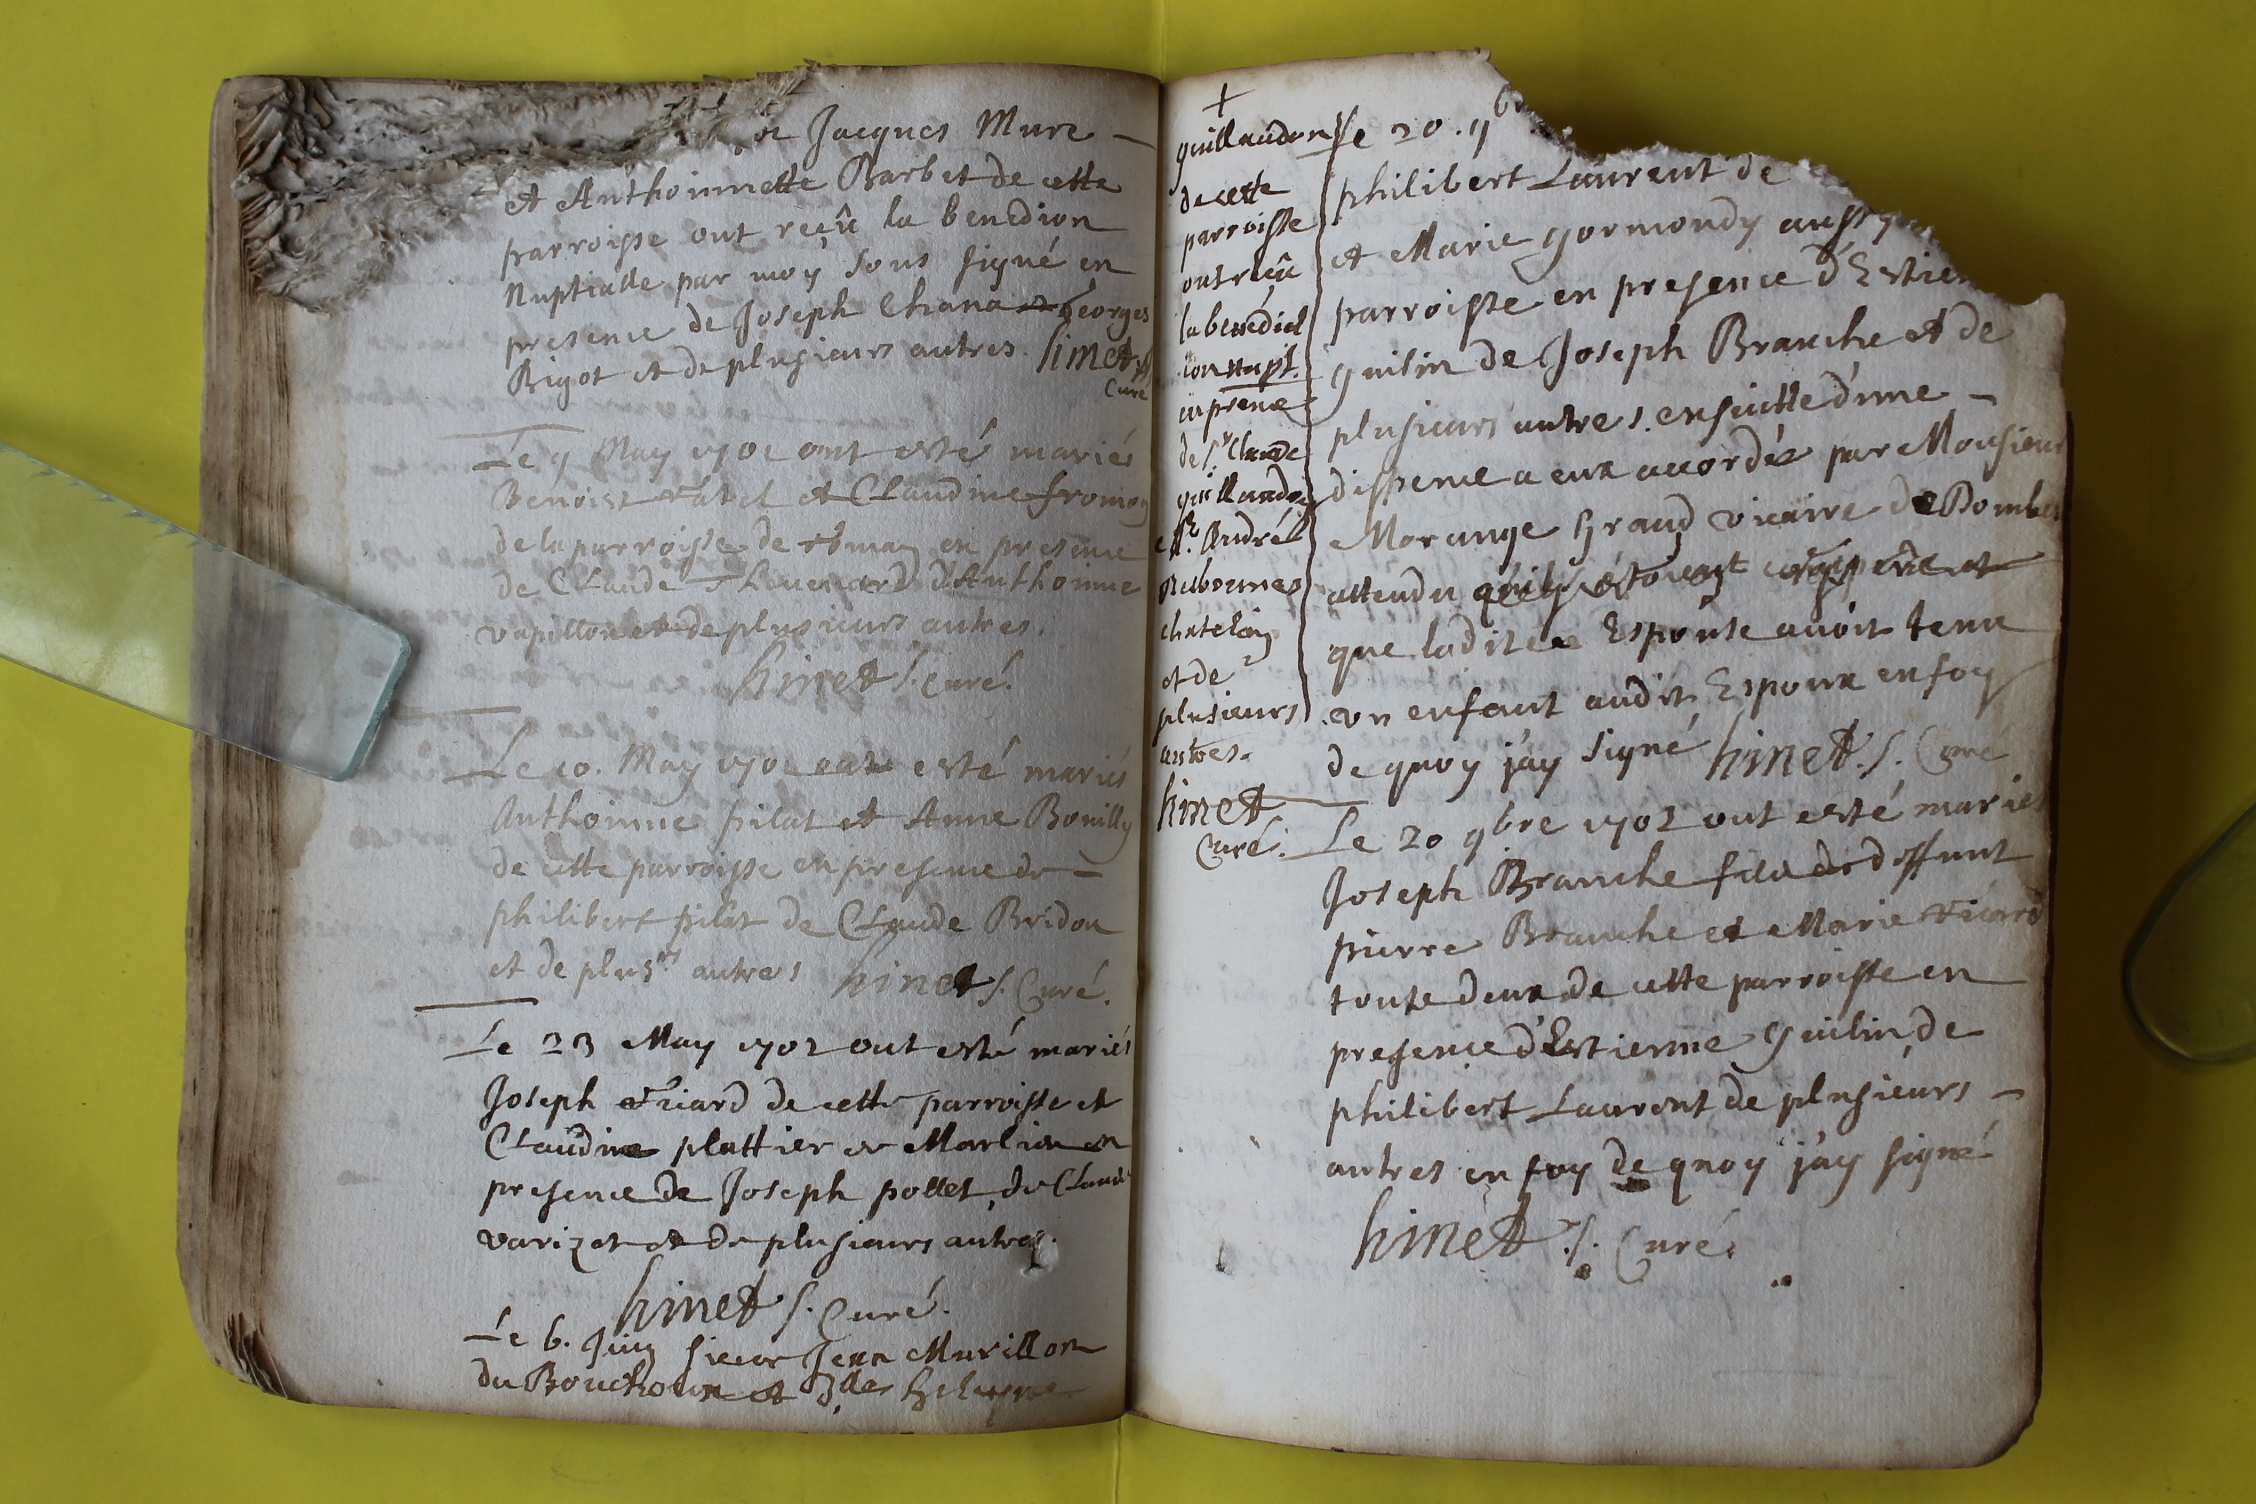 Jacques Mure –
et Anthoinnette Barbet de cette
parroisse ont reçû la benedion
Nuptialle par moy sous signé en
presence de Joseph Chana et Georges
Bigot et de plusieurs autres. hinet
Curé
Le 9 May 1702 ont esté mariés
Benoist et Claudine fromon
de la parroisse de en presence
de Claude Thevenard d'Anthoinne
vapillon et de plusieurs autres.
hinet S. Curé.
Le 10. May 1702 ont esté mariés
Anthoinne pilat et Anne Bouilly
de cette parroisse en presence de –
philibert pilat de Claude Bridon
et de plusrs autres hinet S. Curé.
Le 23 May 1702 ont esté mariés
Joseph Ricard de cette parroisse et
Claudine plattier de Marlieu en
presence de Joseph pollet, de Claude
varizet et de plusieurs autres.
hinet S. Curé.
Le 6. Juin sieur Jean Murillon
du Bouchoux et
+
guillaudon
de cette
parroisse
ont reçû
la benédict
ion nupt.
en prence
de Sr. Claude
guillaudon
et Sr. André
chatelain
et de
plusieurs
autres.
hinet
Curé.
Le 20. 9b
philibert Laurent de
et Marie gormondy aussy
parroisse en presence d'Estien
guilin de Joseph Branche et de
plusieurs autres. ensuitte d'une –
dispence a eux accordée par Monsieur
Morange grand vicaire de Dombes
attendu qu'ils étoient
que laditte Espouse avoit tenu
un enfant audit Espoux en foy
de quoy j'ay signé hinet. S. Curé
Le 20 9bre 1702 ont esté mariés
Joseph Branche fils de deffunt
pierre Branche et Marie Ricard
toute deux de cette parroisse en
presence d'Estienne guilin de
philibert Laurent de plusieurs –
autres en foy de quoy j'ay signé
hinet. S. Curé.